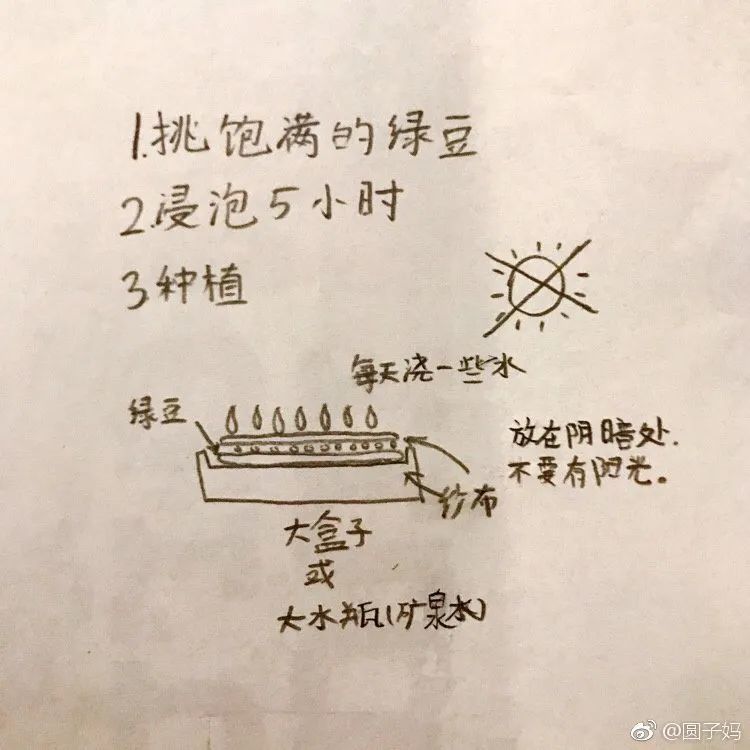 1.挑饱满的绿豆
2.浸泡5小时
3种植
每天浇一些水
绿豆
放在阴暗处.
不要有阳光。
纱布
大盒子
或
大水瓶(矿泉水)
@圆子妈